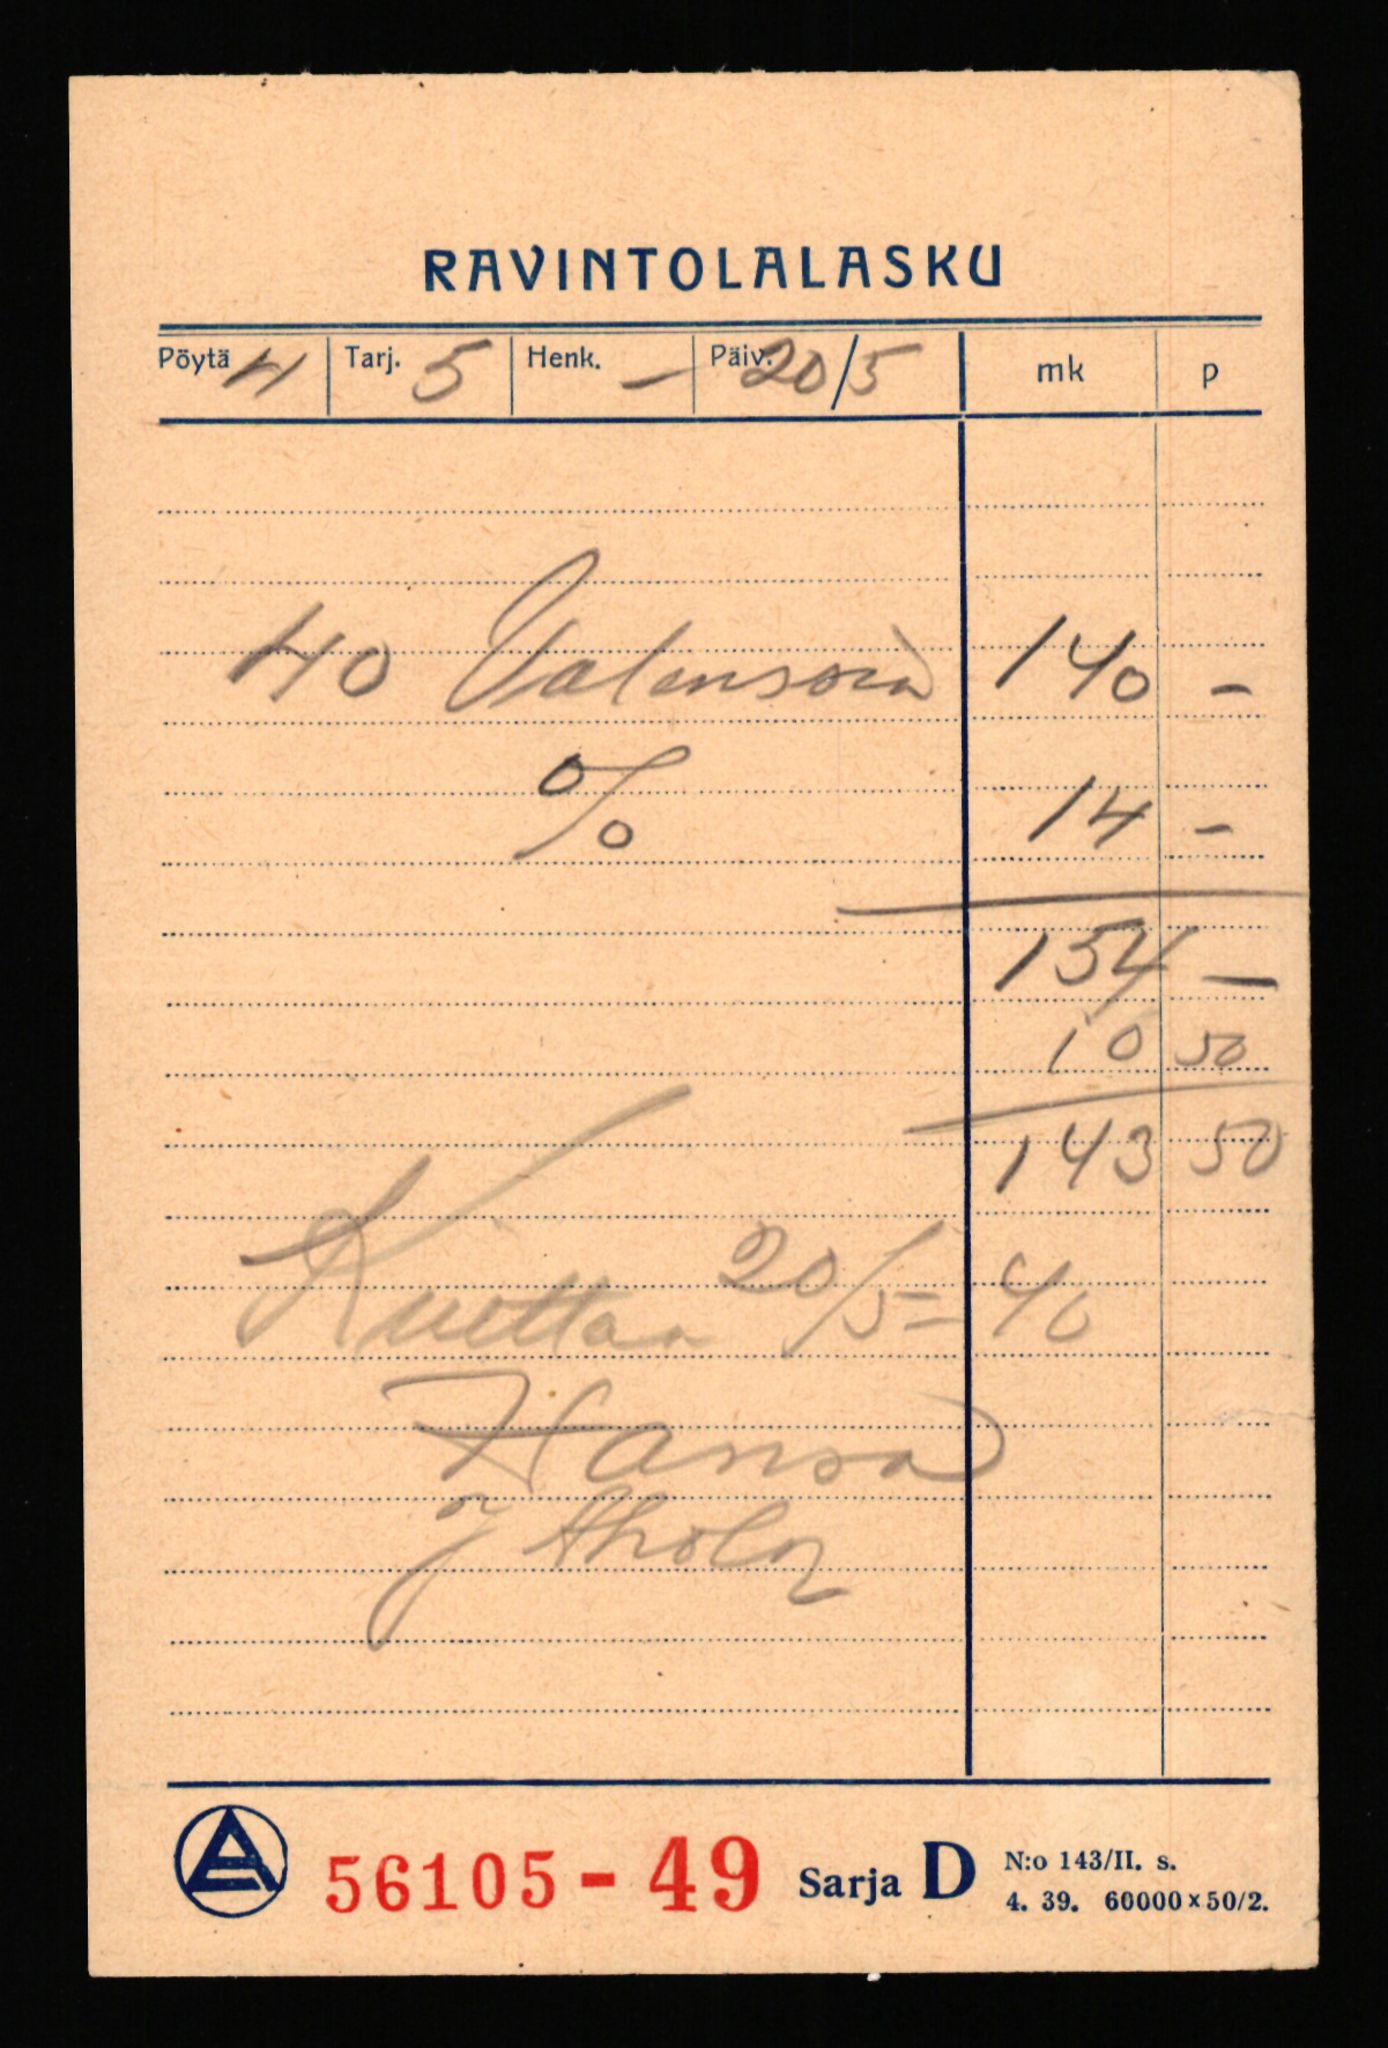 RAVINTOLALASKU
Pöytä 4 Tarj. 5 Henk. — Päiv. 20/5 mk p
40 140 -
% 14 -
154 -
10 50
143 50
Kuittaa 20/5-40
Hansa
J Aholz
A 56105-49 Sarja D N:o 143/II. s.
4. 39. 60000×50/2.